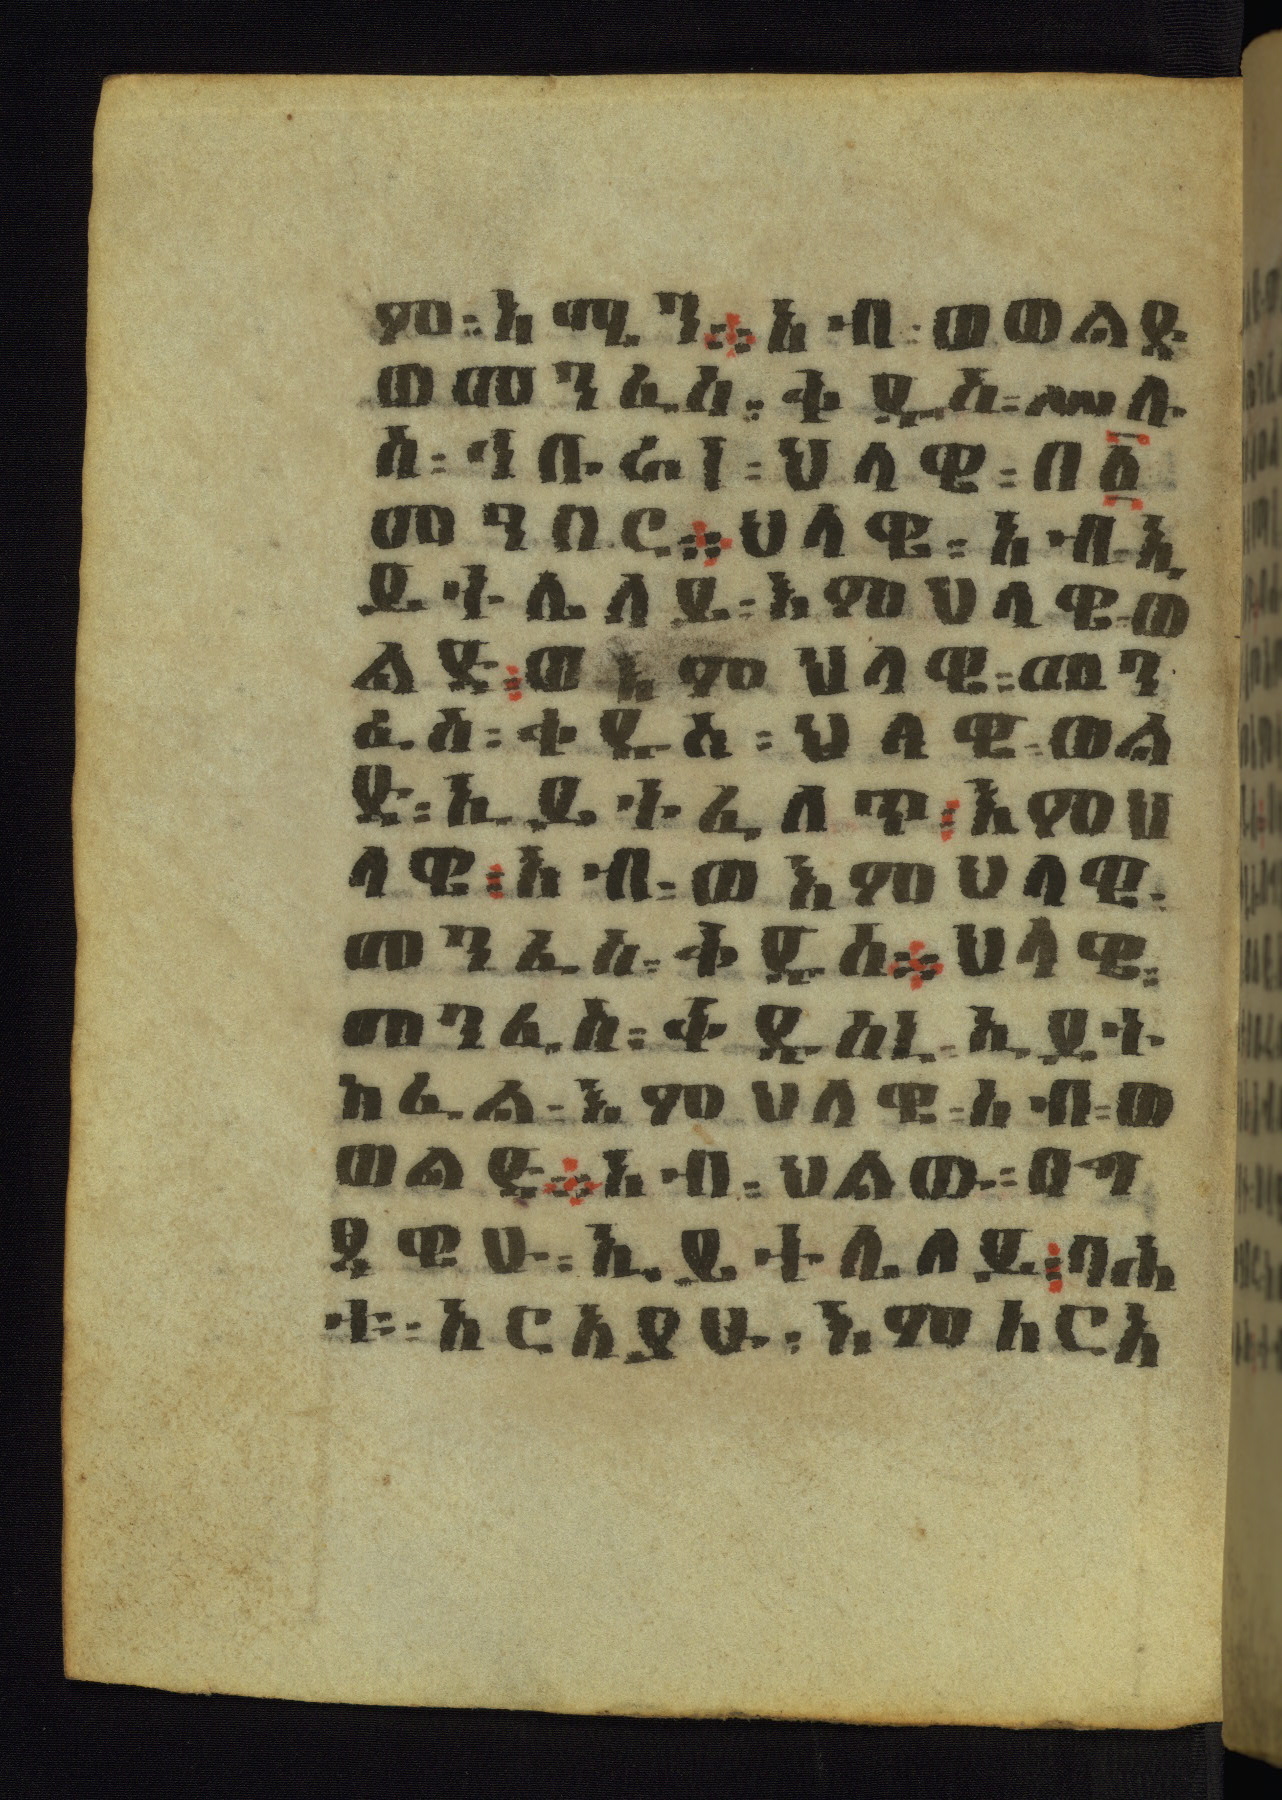 ም፡አሜን፨አብ፡ወወልድ
ወመንፈስ፡ቅዱስ፡ሥሉ
ስ፡ኅቡራነ፡ህላዌ፡በ፩
መንበር፨ህላዌ፡አብኢ
ይትሌለይ፡እምህላዌ፡ወ
ልድ፡ወእምህላዌ፡መን
ፈስ፡ቅዱስ፡ህላዌ፡ወል
ድ፡ኢይትፈለጥ፡እምህ
ላዌ፡አብ፡ወእምህላዌ፡
መንፈስ፡ቅዱስ፨ህላዌ፡
መንፈስ፡ቅዱስኒ፡ኢይት
ከፈል፡እምህላዌ፡አብ፡ወ
ወልድ፨አብ፡ህልው፡በገ
ጸዌሁ፡ኢይትሌለይ፡ባሕ
ቱ፡አርአያሁ፡እምአርአ